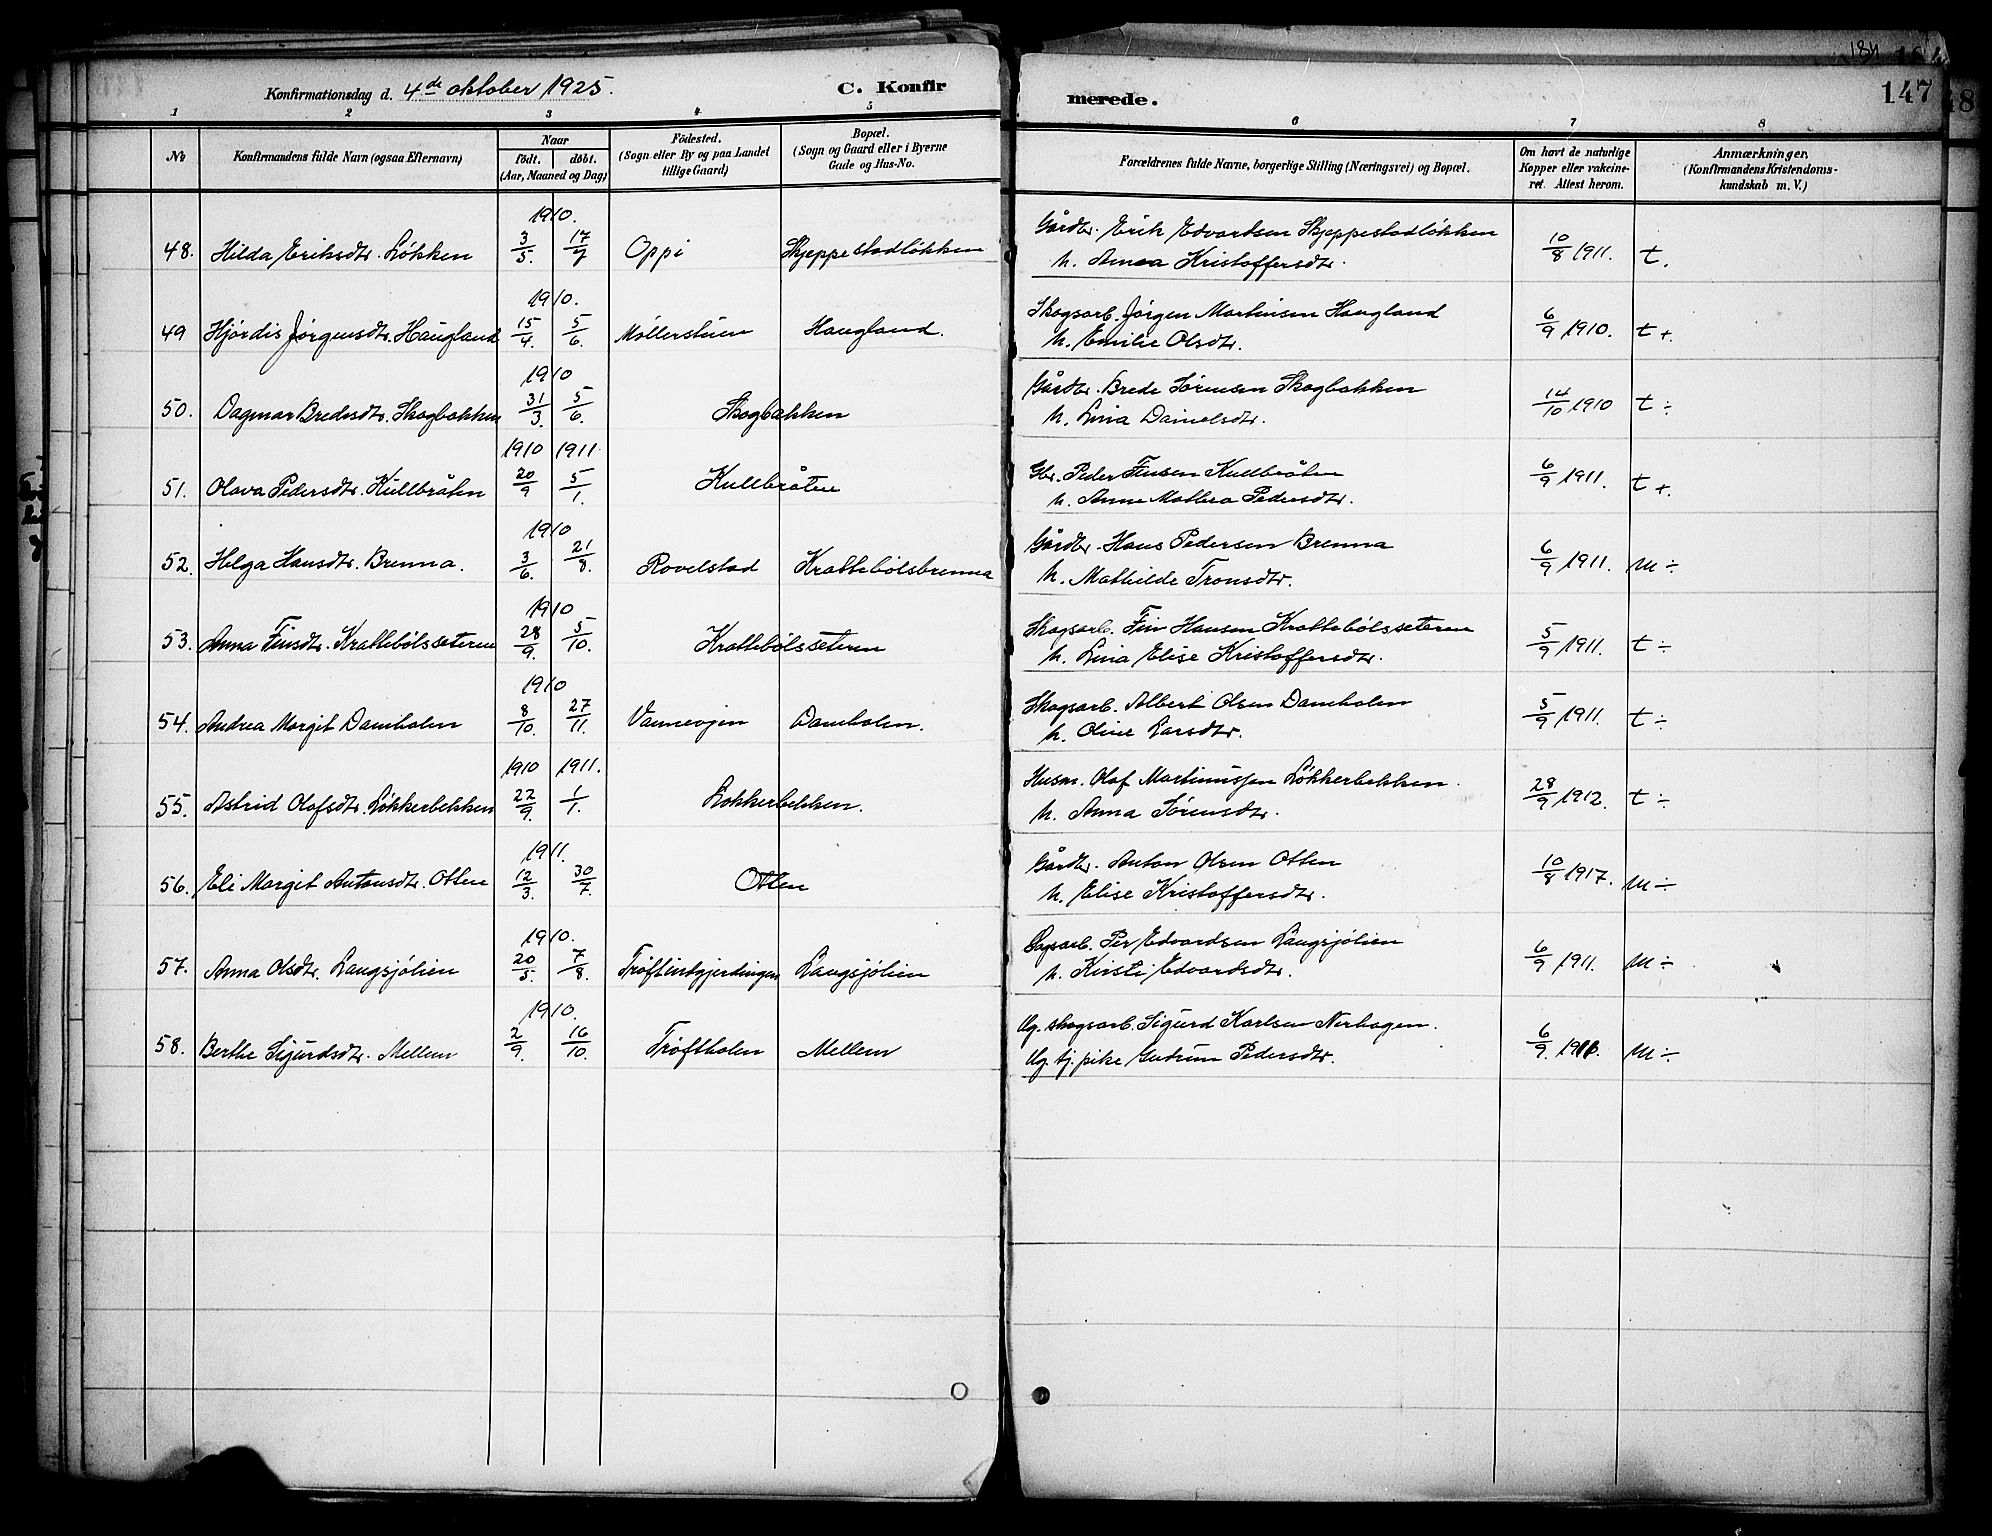 184
147
Konfirmationsdag d. 4de oktober 1925. C. Konfir merede.
1 2 3 4 5 6 7 8
No Konfirmandens fulde Navn (ogsaa Efternavn)
Naar født. døbt. (Aar, Maaned og Dag)
Fødested. (Sogn eller By og paa Landet tillige Gaard)
Bopæl. (Sogn og Gaard eller i Byerne Gade og Hus-No.
Forældrenes fulde Navne, borgerlige Stilling (Næringsvei) og Bopæl.
Om havt de naturlige Kopper eller vakcineret. Attest herom.
Anmærkninger. (Konfirmandens Kristendomskundskab m. V.)
1910.
48. Hilda Eriksdtr. Løkken 3/5. 17/7 Oppi Skjeppestadløkken Gårdbr. Erik Edvardsen Skjeppestadløkken 10/8 1911. t.
h. Anna Kristoffersdtr.
1910.
49 Hjørdis Jørgensdtr. Haugland 15/4. 5/6. Møllerstuen Haugland. Skogsarb. Jørgen Martinsen Haugland 6/9 1910. t +.
h. Emilie Olsdtr.
1910
50. Dagmar Bredesdtr. Skogbakken 31/3. 5/6. Skogbakken Gårdbr. Brede Sørensen Skogbakken 14/10 1910 t ÷
h. Lina Danielsdtr.
1910 1911
51. Olava Pedersdtr. Kullbråten 20/9 5/1. Kullbråten Gbr. Peder Finsen Kullbråten 6/9 1911. t +.
h. Anne Mathea Pedersdtr.
1910
52. Helga Hansdtr. Brenna. 3/6. 21/8. Rovelstad Krattebølsbrenna Gårdbr. Hans Pedersen Brenna 6/9 1911. M ÷
h. Mathilde Tronsdtr.
1910
53. Anna Finsdtr. Krattebølsseteren 28/9. 5/10. Krattebølsseteren Skogsarb. Fin Hansen Krattebølsseteren 5/9 1911. t ÷
h. Lina Elise Kristoffersdtr.
1910
54. Andrea Margit Damholen 8/10. 27/11. Vannevjen Damholen. Skogsarb. Albert Olsen Damholen 5/9 1911. t ÷
h. Oline Larsdtr.
1910 1911.
55. Astrid Olofsdtr. Løkkerbekken 22/9. 1/1. Løkkerbekken. Husm. Olof Martinussen Løkkerbekken. 28/9 1912. t ÷
h. Anna Sørensdtr.
1911.
56. Eli Margit Antonsdtr. Otten 12/3. 30/7. Otten Gårdbr. Anton Olsen Otten 10/8 1917. M ÷
h. Elise Kristoffersdtr.
1910.
57. Anna Olsdtr. Langsjølien 20/5. 7/8. Trøftlintgjerdingen Langsjølien Per Edvardsen Langsjølien 6/9 1911. M ÷
h. Kirsti Edvardsdtr.
1910.
58. Berthe Sigurdsdtr. Mellem 2/9. 16/10. Trøftholen Mellem Ug. skogsarb. Sigurd Karlsen Nerhagen. 6/9. M ÷
Ug. tj. pike Gudrun Pedersdtr.